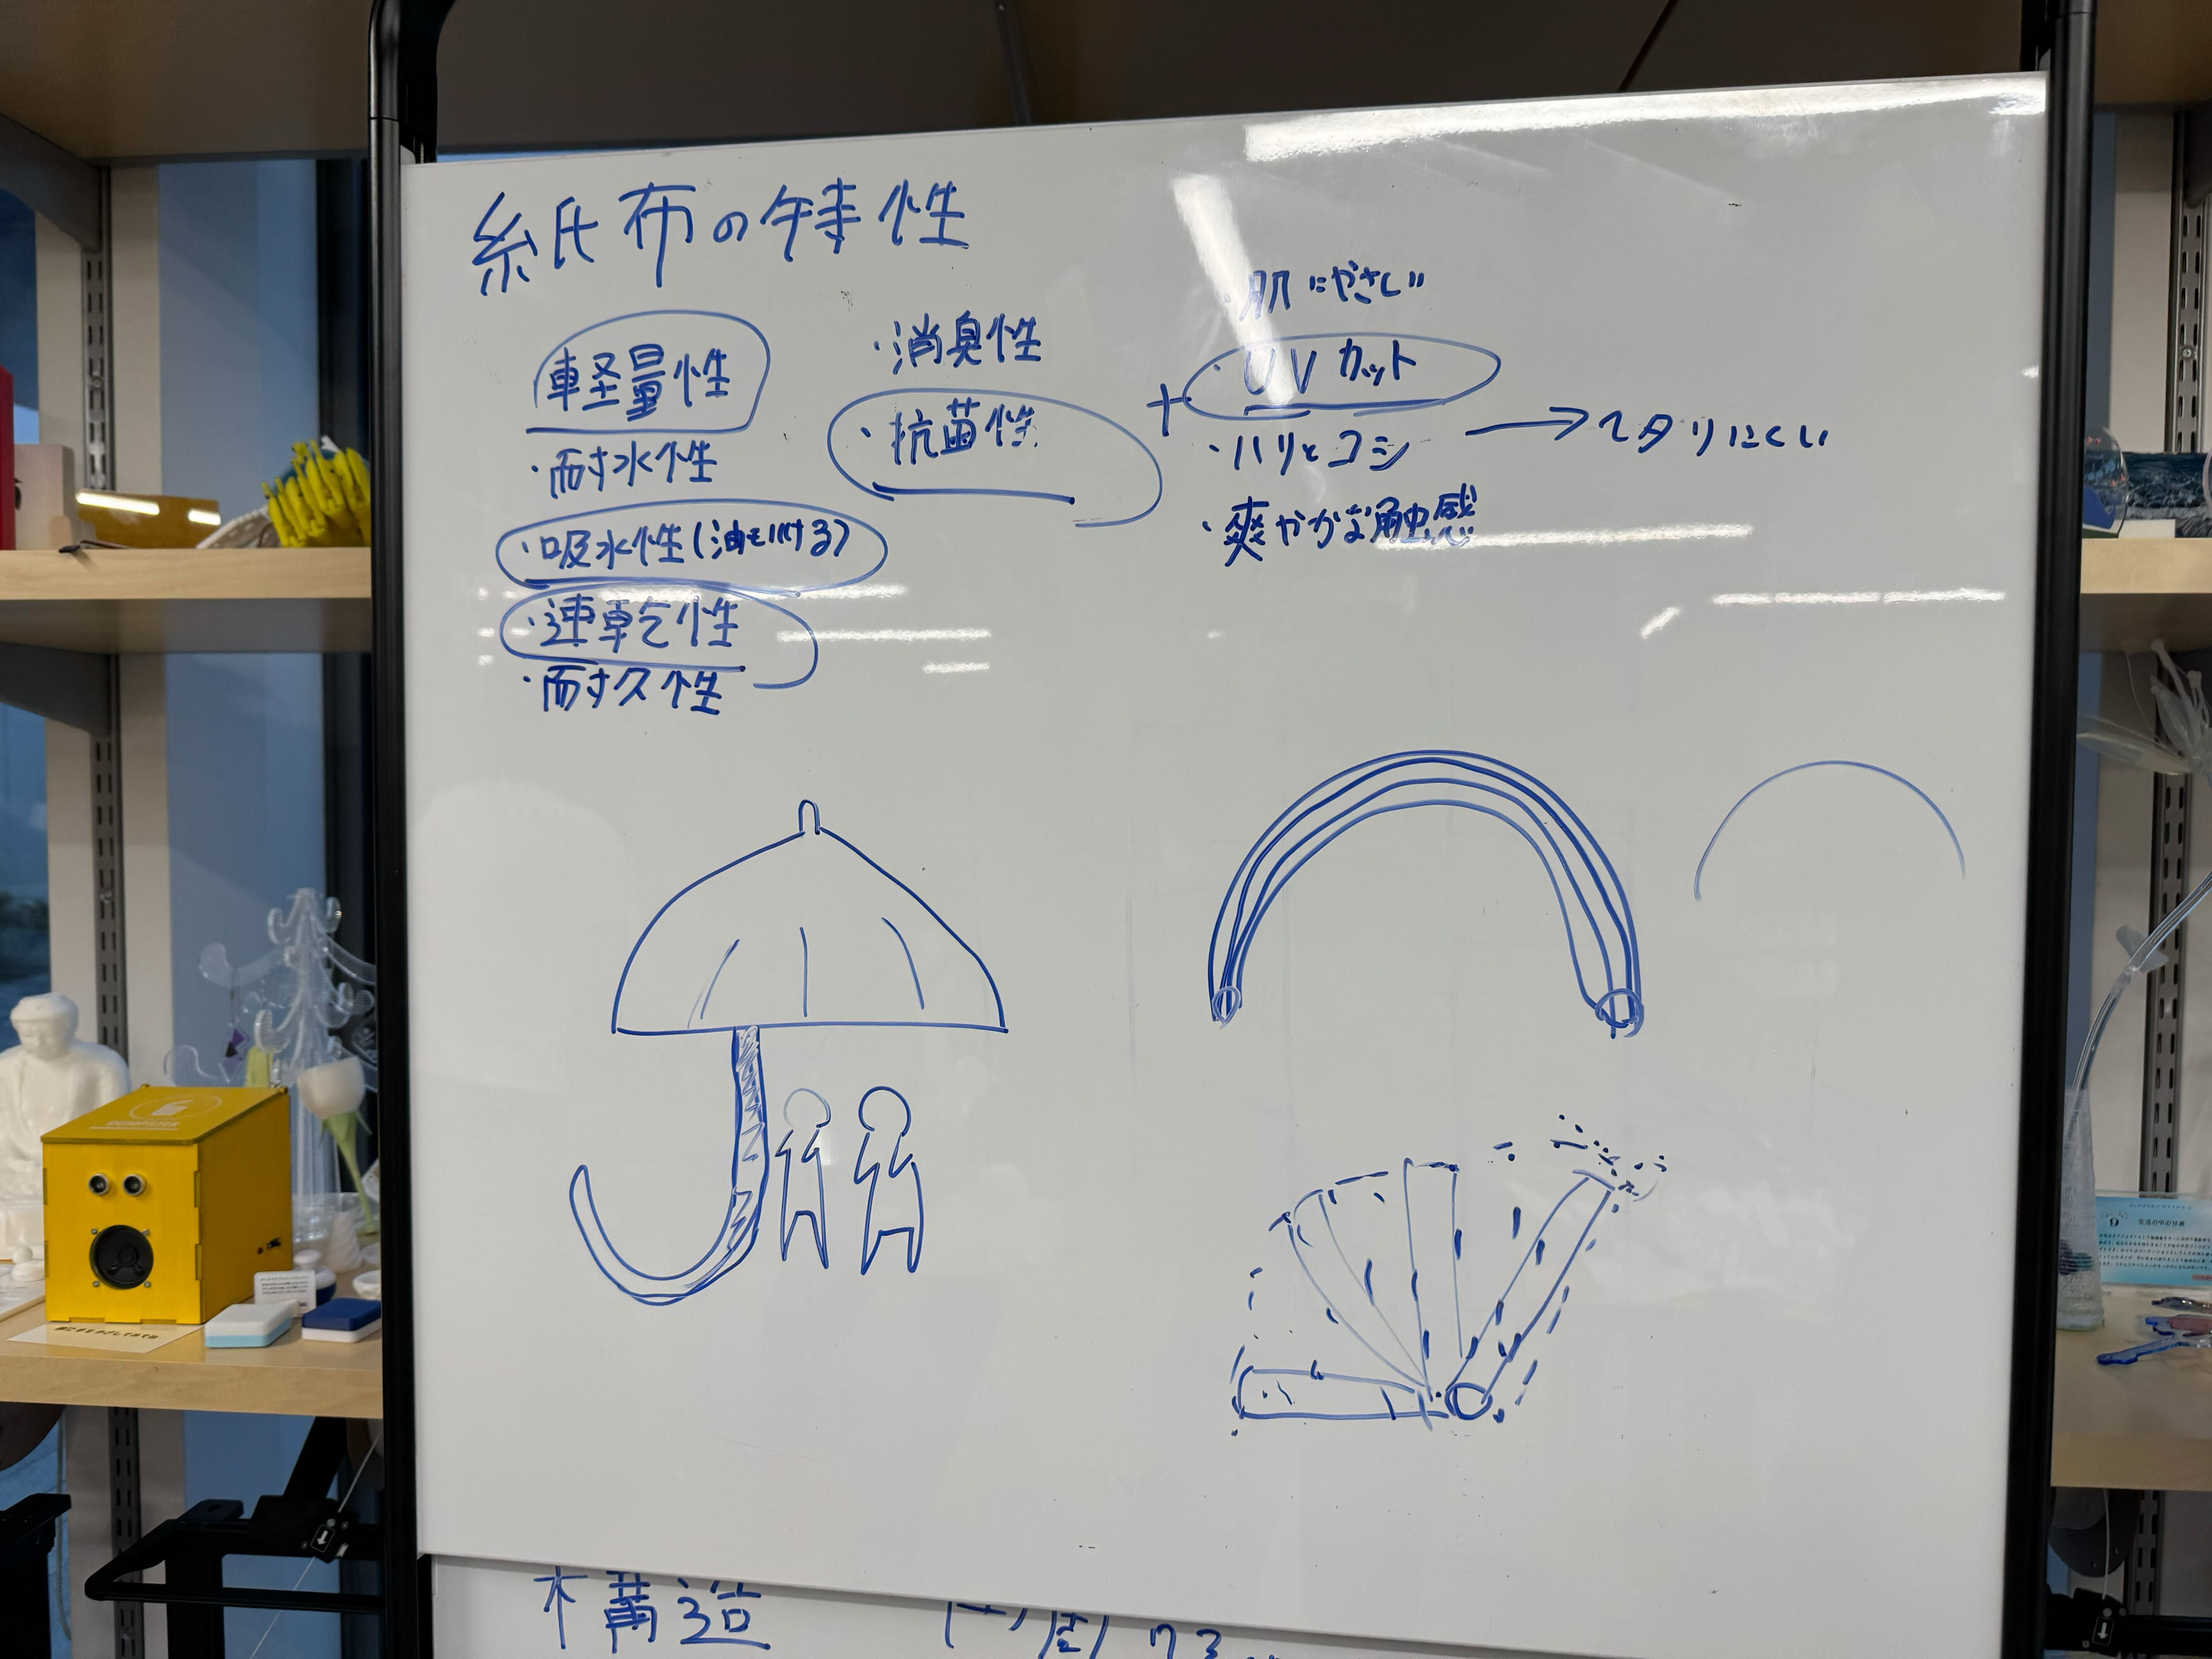 紙布の特性
軽量性
・耐水性
・吸水性(油もいける)
・速乾性
・耐久性
・消臭性
・抗菌性
+
・肌にやさしい
・UVカット
・ハリとコシ → ヘタりにくい
・爽やかな触感
構造